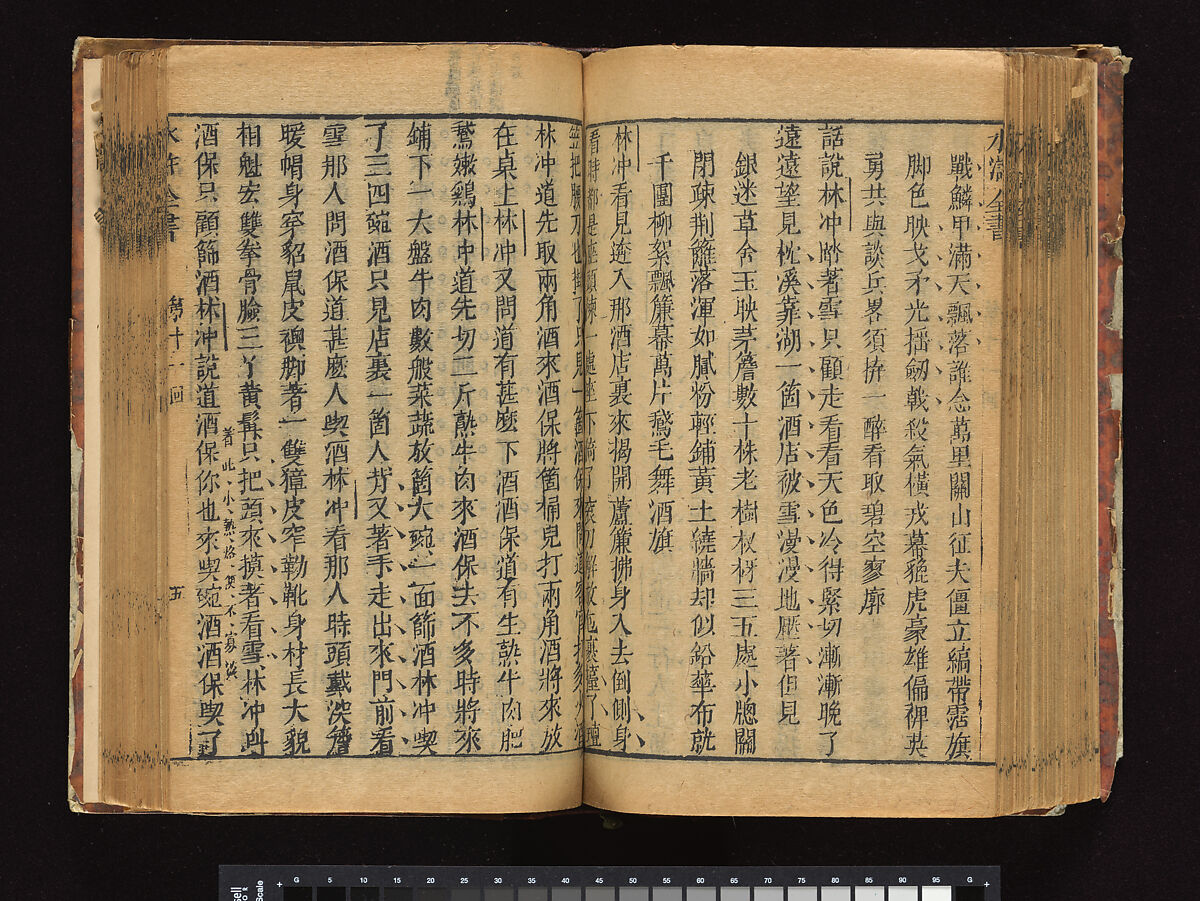 水滸全書
戰鱗甲滿天飄落誰念萬里關山征夫僵立縞帶霑旗
脚色映戈矛光搖劒戟殺氣橫戎幕貔虎豪雄偏裨英
勇共與談兵畧須拚一醉看取碧空寥廓
話說林冲踏著雪只顧走看看天色冷得緊切漸漸晚了
遠遠望見枕溪靠湖一箇酒店被雪漫漫地壓著但見
銀迷草舍玉映茅簷數十株老樹杈枒三五處小牕關
閉疎荆籬落渾如膩粉輕鋪黃土繞牆却似鉛華布就
千團柳絮飄簾幕萬片鵞毛舞酒旗
林冲看見逩入那酒店裏來揭開蘆簾拂身入去倒側身
看時都是座頭揀一處坐下倚了衮刀解放包裹擡了氊
笠把腰刀也掛了只見一箇酒保來問道客官打多少酒
林冲道先取兩角酒來酒保將箇桶兒打兩角酒將來放
在桌上林冲又問道有甚麽下酒酒保道有生熟牛肉肥
鵞嫩鷄林冲道先切二斤熟牛肉來酒保去不多時將來
鋪下一大盤牛肉數般菜蔬放箇大碗一面篩酒林冲喫
了三四碗酒只見店裏一箇人背叉著手走出來門前看
雪那人問酒保道甚麽人喫酒林冲看那人時頭戴深簷
暖帽身穿貂鼠皮襖脚著一雙獐皮窄靿靴身材長大貌
相魁宏雙拳骨臉三丫黃髯只把頭來摸著看雪林冲叫
酒保只顧篩酒林冲說道酒保你也來喫碗酒酒保喫了
著此小熱絡便不寂淡
水滸全書
第十一回
五
5 10 15 20 25 30 35 40 45 50 55 60 65 70 75 80 85 90 95